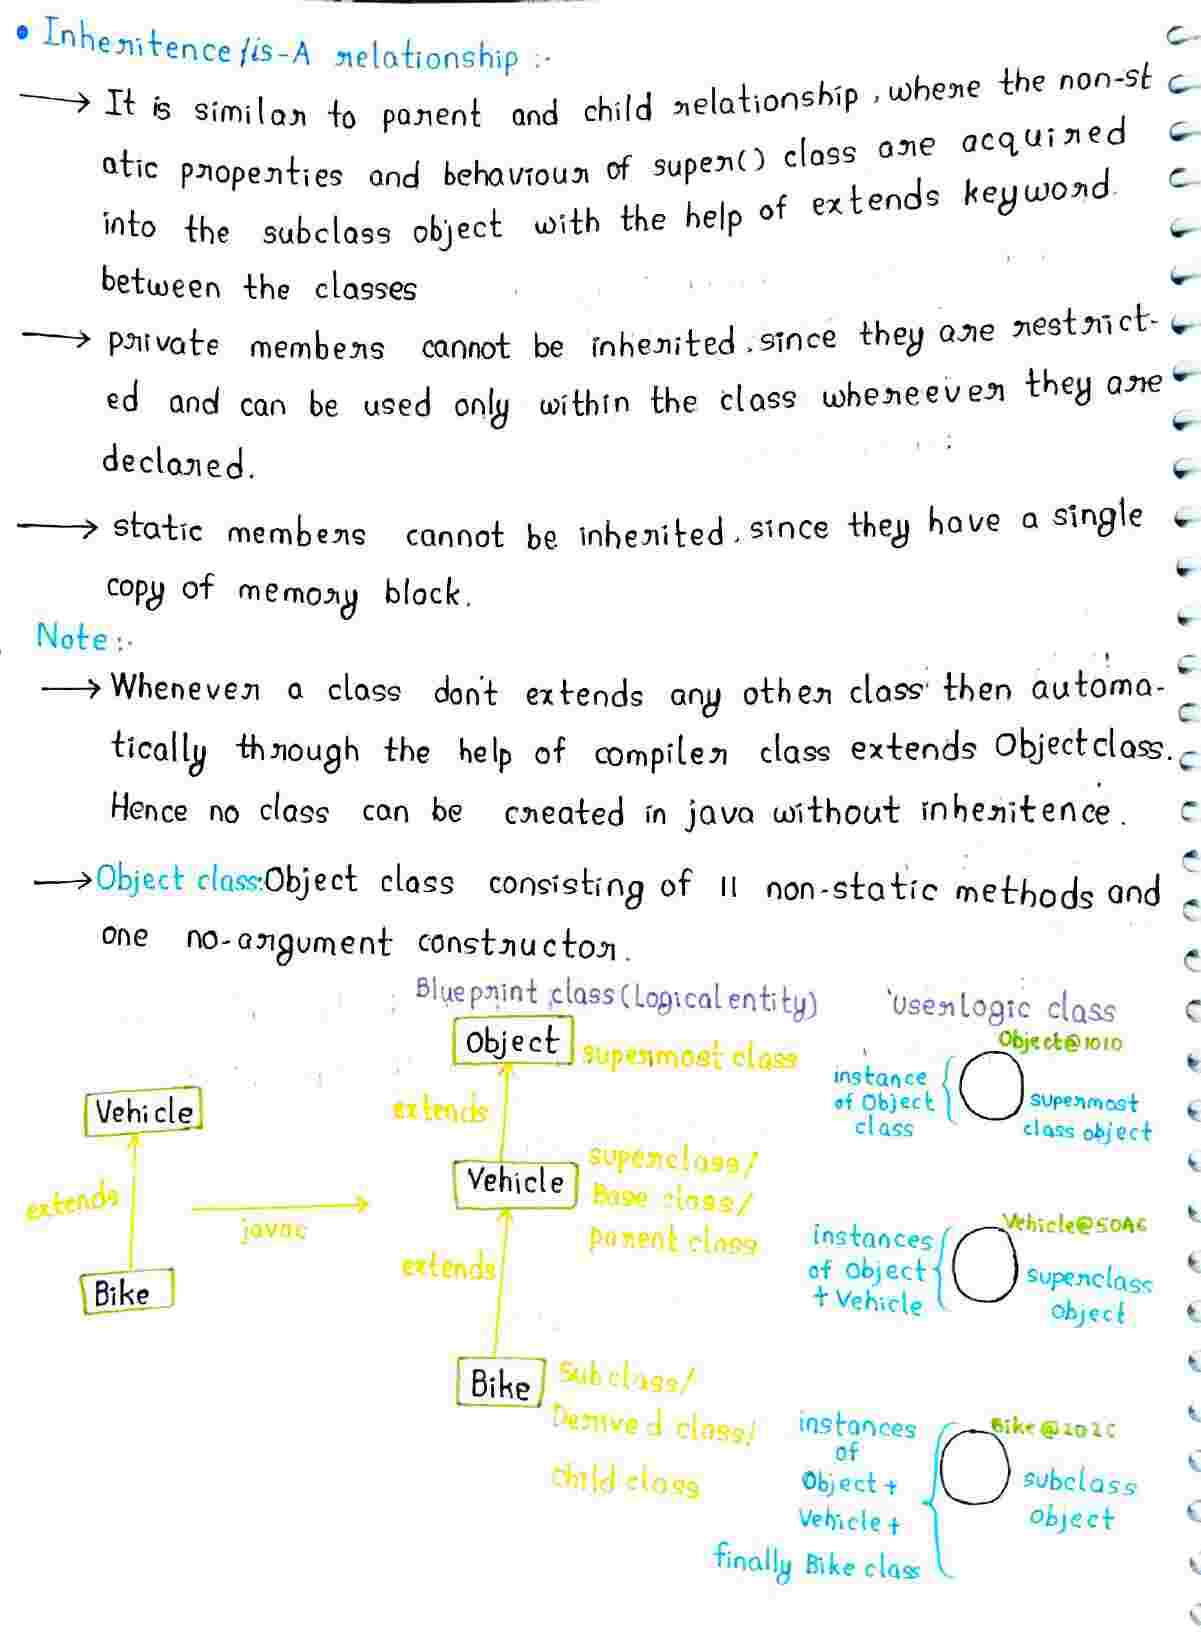 • Inheritence/is-A relationship :-
→ It is similar to parent and child relationship, where the non-st
atic properties and behaviour of super() class are acquired
into the subclass object with the help of extends keyword.
between the classes
→ private members cannot be inherited. since they are restrict-
ed and can be used only within the class whereever they are
declared.
→ static members cannot be inherited. since they have a single
copy of memory block.
Note :-
→ Whenever a class don't extends any other class then automa-
tically through the help of compiler class extends Object class.
Hence no class can be created in java without inheritence.
→ Object class: Object class consisting of 11 non-static methods and
one no-argument constructor.
Blueprint class (Logical entity)
User logic class
Vehicle
extends
Bike
javac
Object
supermost class
extends
Vehicle
superclass/
Base class/
parent class
extends
Bike
Subclass/
Derived class/
child class
Object@1010
instance
of Object
class
supermost
class object
Vehicle@50A6
instances
of Object
+ Vehicle
superclass
object
Bike@202C
instances
of
Object +
Vehicle +
finally Bike class
subclass
object